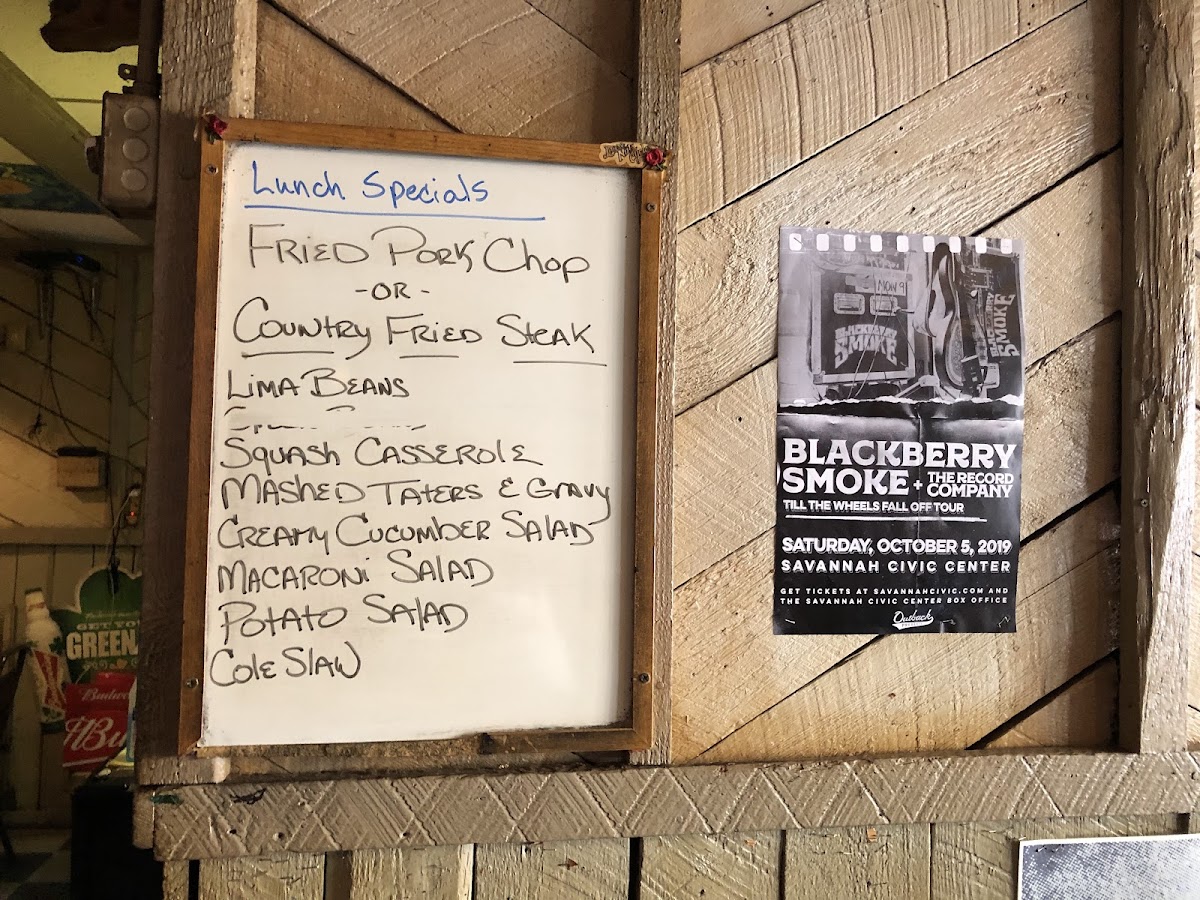 Lunch Specials
FRIED PORK Chop
- OR -
COUNTRY FRIED STEAK
LIMA BEANS
SQUASH CASSEROLE
MASHED TATERS & GRAVY
CREAMY CUCUMBER SALAD
MACARONI SALAD
POTATO SALAD
COLE SLAW
BLACKBERRY
SMOKE
BLACKBERRY
SMOKE
BLACKBERRY
SMOKE + THE RECORD
COMPANY
TILL THE WHEELS FALL OFF TOUR
SATURDAY, OCTOBER 5, 2019
SAVANNAH CIVIC CENTER
GET TICKETS AT SAVANNAHCIVIC.COM AND
THE SAVANNAH CIVIC CENTER BOX OFFICE
Outback
GET YOUR
GREEN
Budwe
Bu